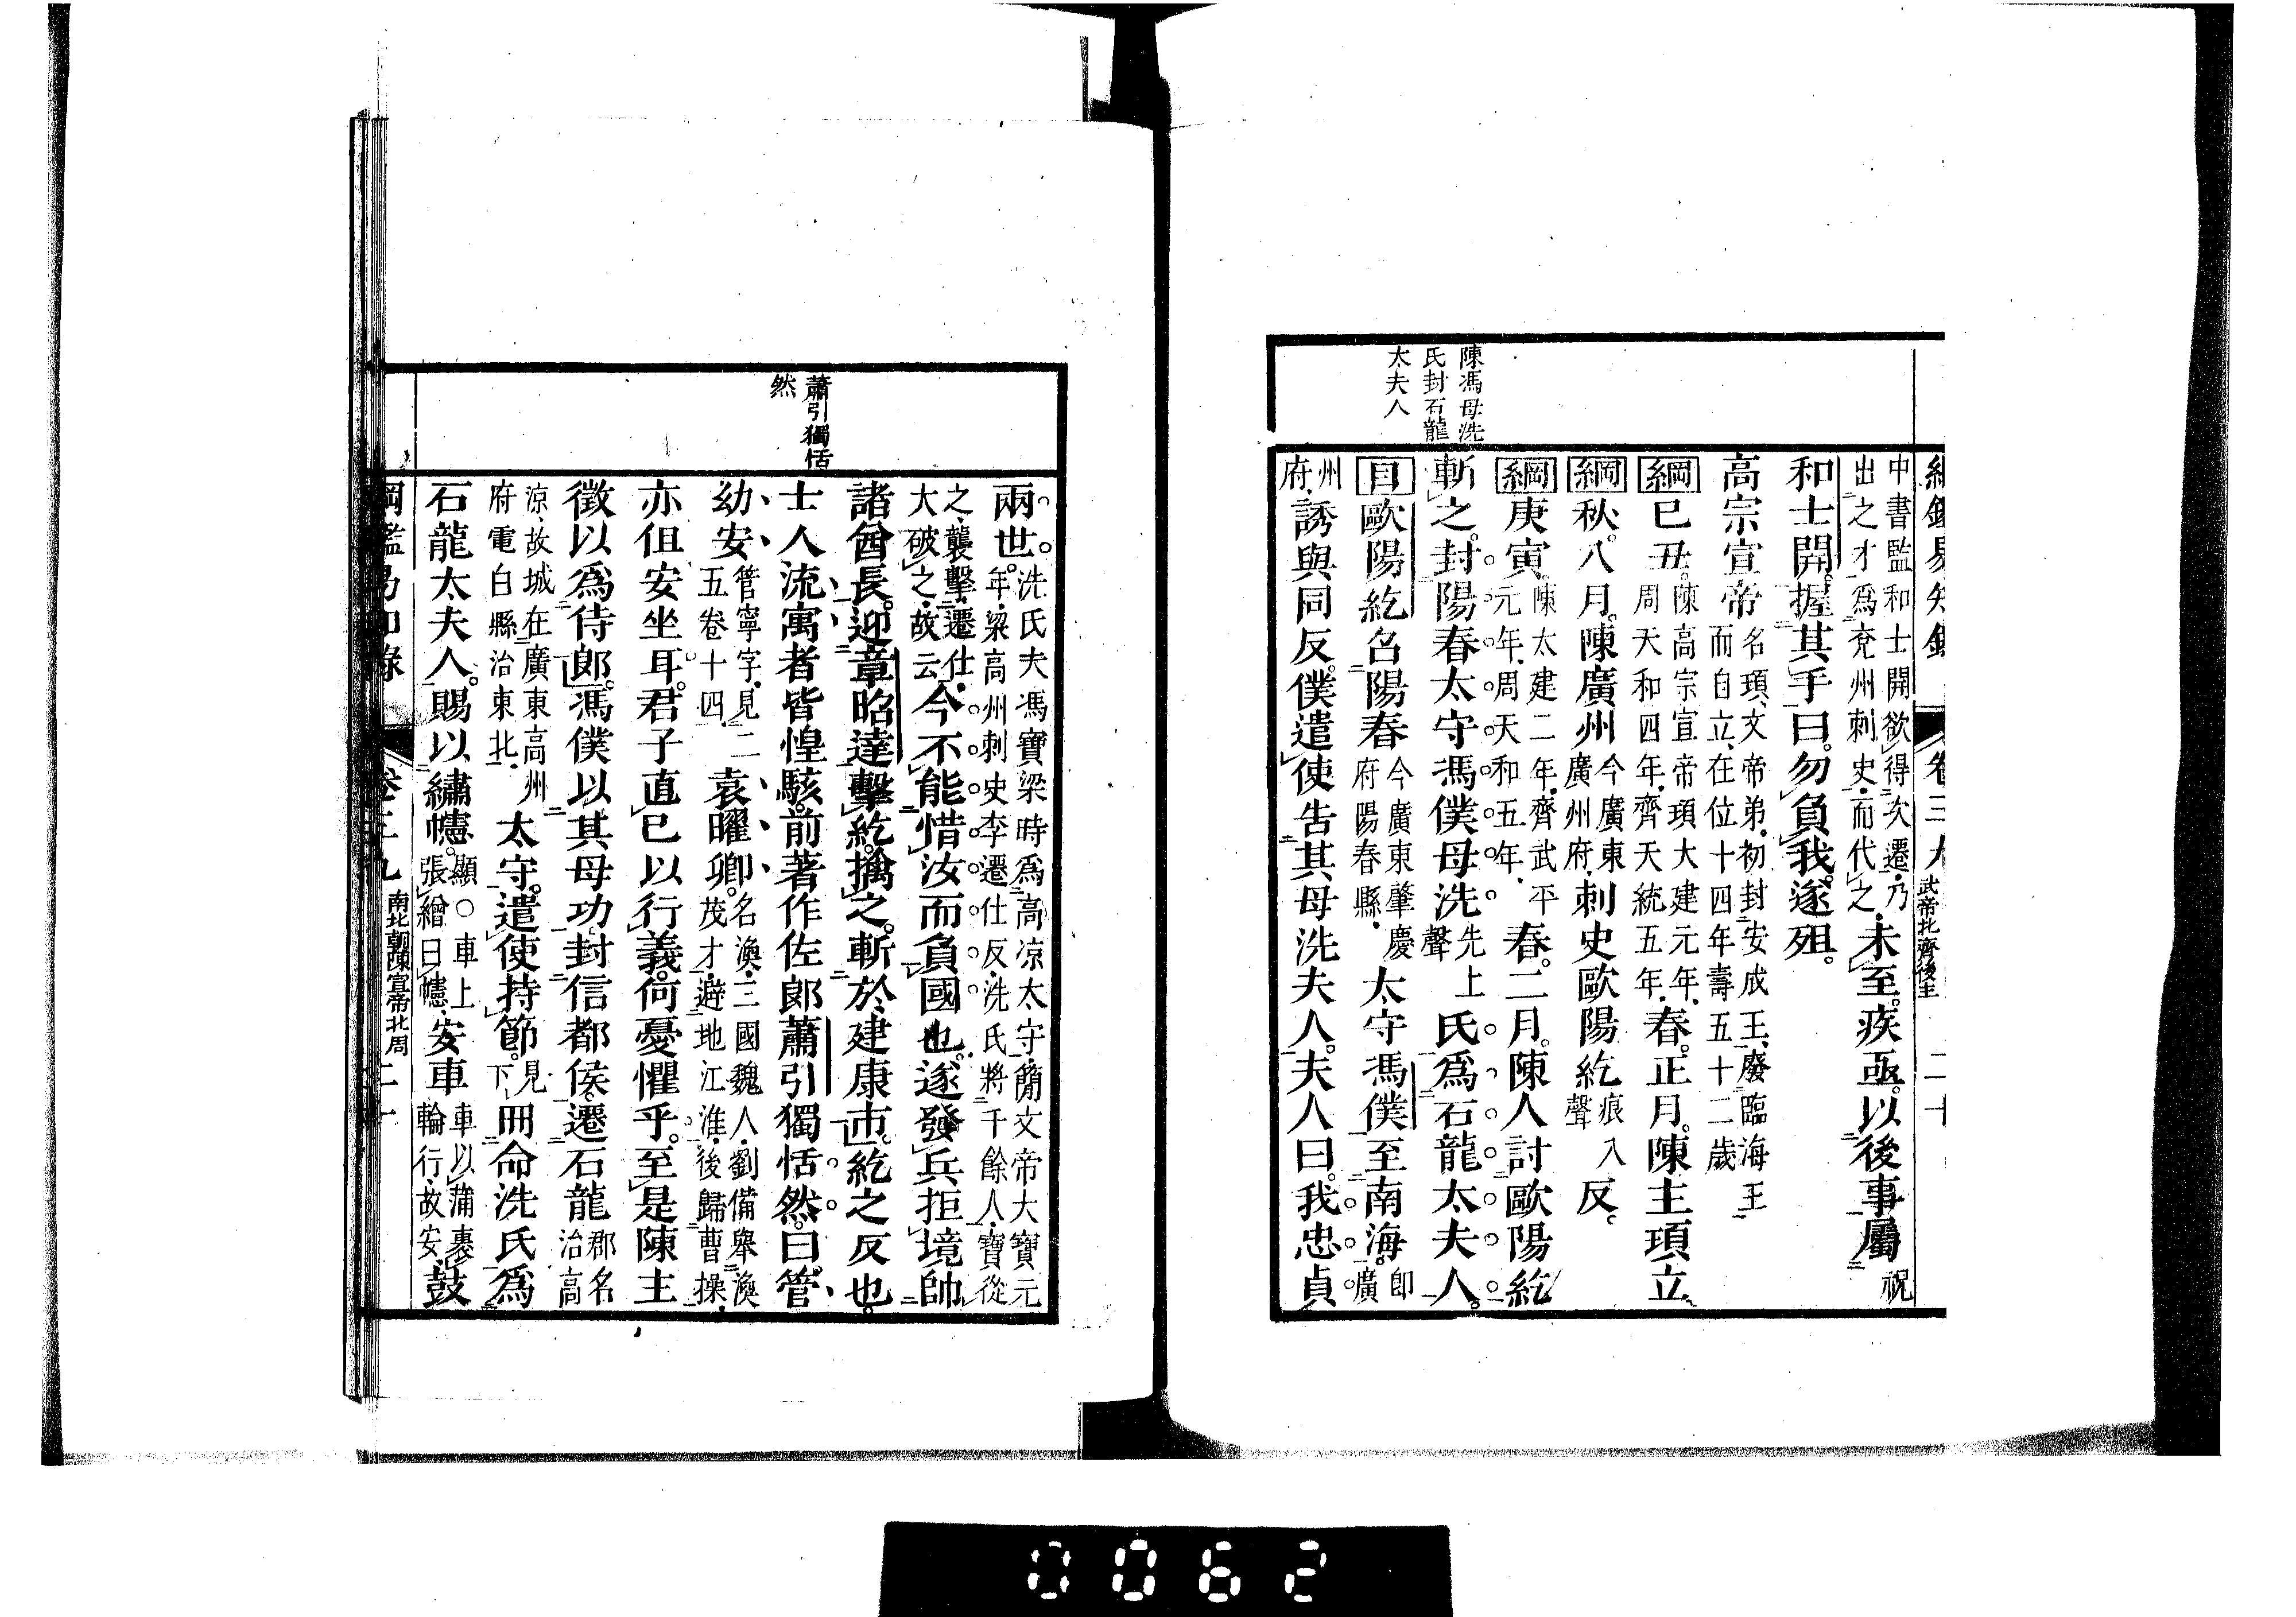 陳馮母洗
氏封石龍
太夫人
中書監和士開欲得次遷乃
出之才爲兗州刺史而代之未至疾亟以後事屬祝
和士開握其手曰勿負我遂殂
高宗宣帝名頊文帝弟初封安成王廢臨海王
而自立在位十四年壽五十二歲
綱己丑陳高宗宣帝頊大建元年
周天和四年齊天統五年春正月陳主頊立
綱秋八月陳廣州今廣東
廣州府刺史歐陽紇痕入
聲反
綱庚寅陳太建二年齊武平
元年周天和五年春二月陳人討歐陽紇
斬之封陽春太守馮僕母洗先上
聲氏爲石龍太夫人
目歐陽紇召陽春今廣東肇慶
府陽春縣太守馮僕至南海即廣
州
府誘與同反僕遣使告其母洗夫人夫人曰我忠貞
蕭引獨恬
然
兩世洗氏夫馮寶梁時爲高凉太守簡文帝大寶元
年梁高州刺史李遷仕反洗氏將千餘人寶從
之襲擊遷仕
大破之故云今不能惜汝而負國也遂發兵拒境帥
諸酋長迎章昭達擊紇擒之斬於建康市紇之反也
士人流寓者皆惶駭前著作佐郎蕭引獨恬然曰管
幼安管寧字見二
五卷十四袁曜卿名渙三國魏人劉備舉渙
茂才避地江淮後歸曹操
亦但安坐耳君子直已以行義何憂懼乎至是陳主
徵以爲侍郎馮僕以其母功封信都侯遷石龍郡名
治高
凉故城在廣東高州
府電白縣治東北太守遣使持節見
下冊命洗氏爲
石龍太夫人賜以繡幰顯○車上
張繒曰幰安車車以蒲裹
輪行故安鼓
卷三九 南北朝陳宣帝北周